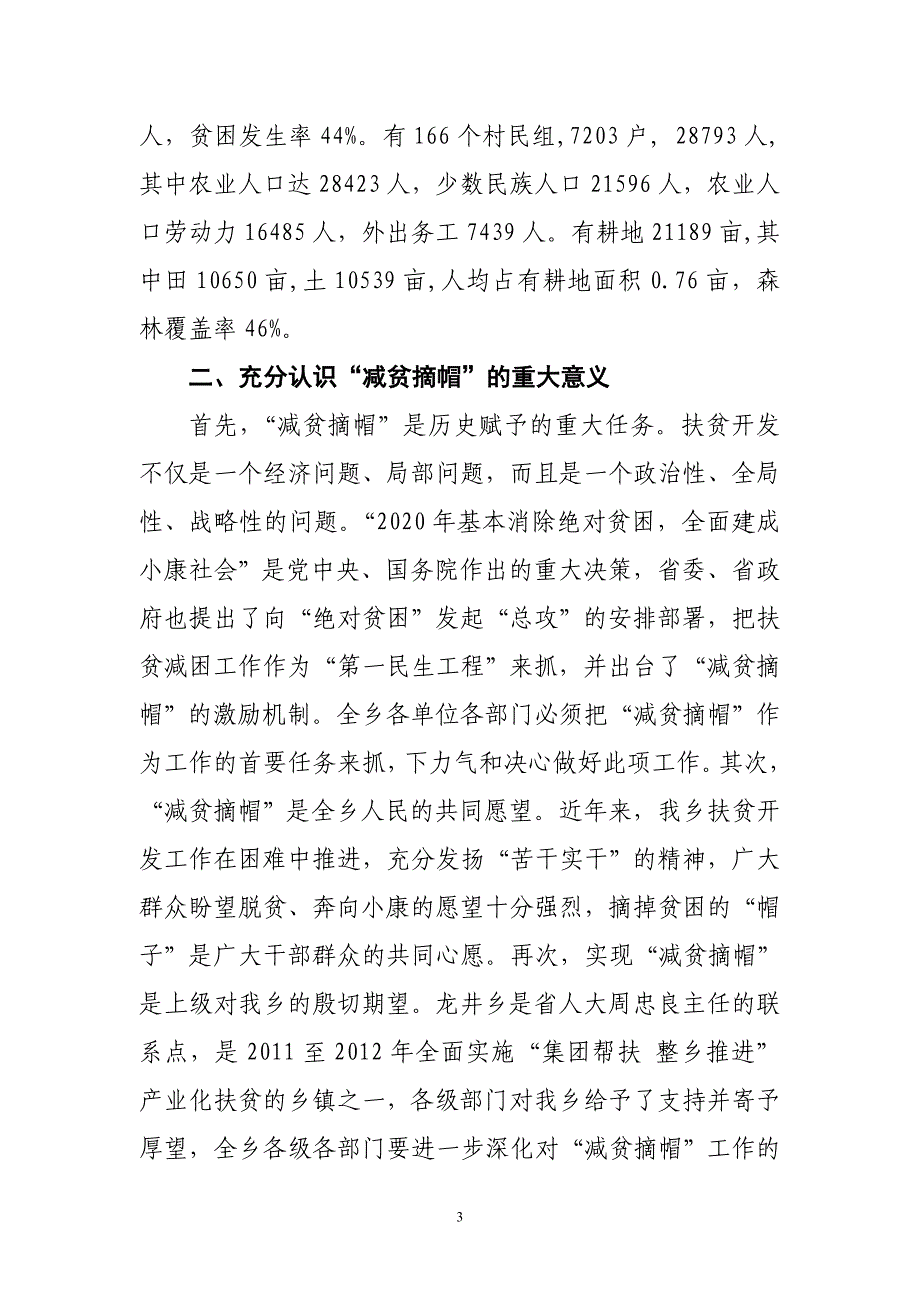 人，贫困发生率 44%。有 166 个村民组,7203 户, 28793 人,
其中农业人口达 28423 人，少数民族人口 21596 人，农业人
口劳动力 16485 人，外出务工 7439 人。有耕地 21189 亩,其
中田 10650 亩,土 10539 亩,人均占有耕地面积 0.76 亩，森
林覆盖率 46%。
二、充分认识“减贫摘帽”的重大意义
首先，“减贫摘帽”是历史赋予的重大任务。扶贫开发
不仅是一个经济问题、局部问题，而且是一个政治性、全局
性、战略性的问题。“2020 年基本消除绝对贫困，全面建成
小康社会”是党中央、国务院作出的重大决策，省委、省政
府也提出了向“绝对贫困”发起“总攻”的安排部署，把扶
贫减困工作作为“第一民生工程”来抓，并出台了“减贫摘
帽”的激励机制。全乡各单位各部门必须把“减贫摘帽”作
为工作的首要任务来抓，下力气和决心做好此项工作。其次，
“减贫摘帽”是全乡人民的共同愿望。近年来，我乡扶贫开
发工作在困难中推进，充分发扬“苦干实干”的精神，广大
群众盼望脱贫、奔向小康的愿望十分强烈，摘掉贫困的“帽
子”是广大干部群众的共同心愿。再次，实现“减贫摘帽”
是上级对我乡的殷切期望。龙井乡是省人大周忠良主任的联
系点，是 2011 至 2012 年全面实施“集团帮扶 整乡推进”
产业化扶贫的乡镇之一，各级部门对我乡给予了支持并寄予
厚望，全乡各级各部门要进一步深化对“减贫摘帽”工作的
3